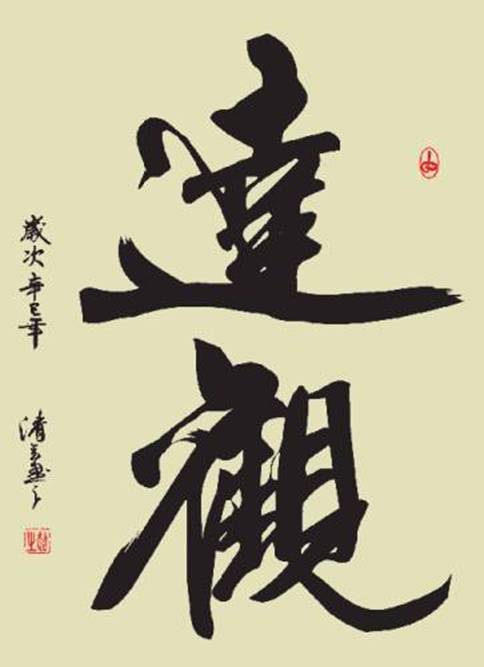 達觀
歲次辛巳年
清